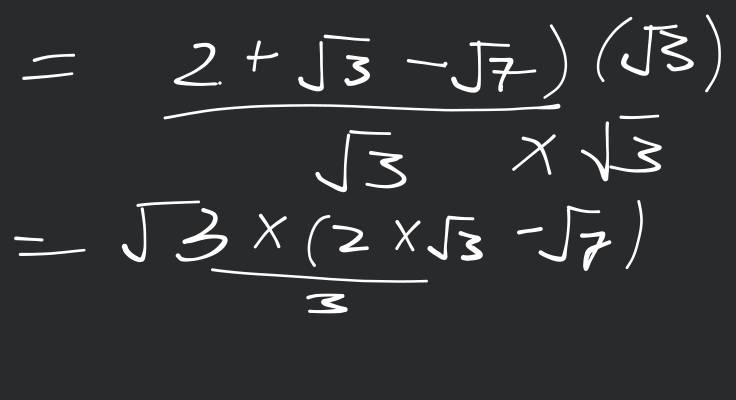 = 2 + √3 - √7) (√3)
√3 × √3
= √3 × (2 × √3 - √7)
3